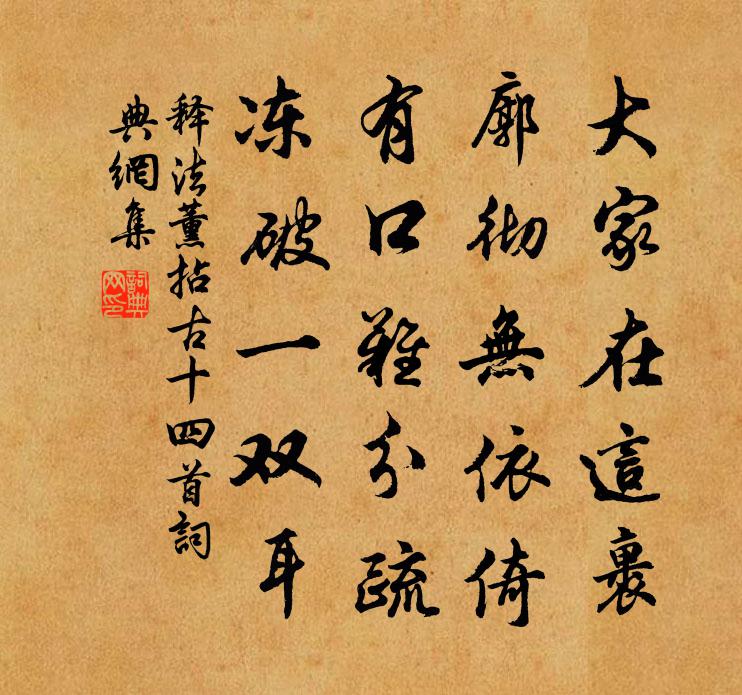 大家在這裏
廓彻無依倚
有口難分疏
冻破一双耳
释法薰拈古十四首詞
典網集
詞典网印